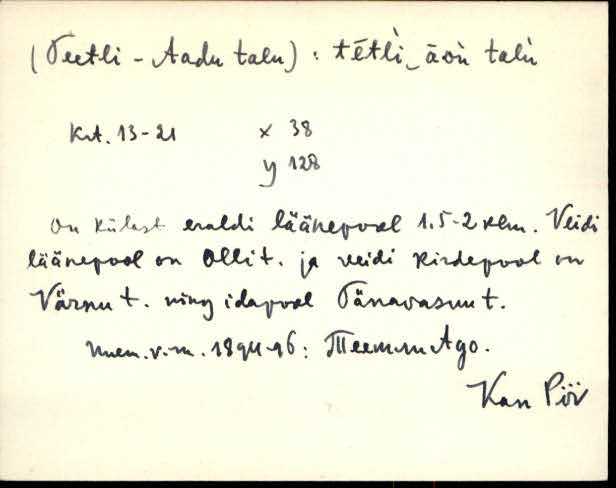 (Teetli - Aadu talu) : tētli‿āðù talù
Krt. 13-21 x 38
y 128
On külast eraldi läänepool 1.5-2 klm. Veidi
läänepool on Olli t. ja veidi kirdepool on
Värnu t. ning idapool Tänavasuu t.
Ago.
Kan